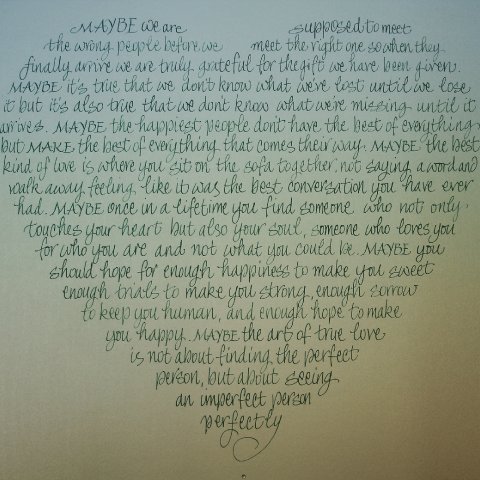 MAYBE we are supposed to meet
the wrong people before we meet the right one so when they
finally arrive we are truly grateful for the gift we have been given.
MAYBE it's true that we don't know what we've lost until we lose
it but it's also true that we don't know what we're missing until it
arrives. MAYBE the happiest people don't have the best of everything
but MAKE the best of everything that comes their way. MAYBE the best
kind of love is where you sit on the sofa together, not saying a word and
walk away feeling like it was the best conversation you have ever
had. MAYBE once in a lifetime you find someone who not only
touches your heart but also your soul, someone who loves you
for who you are and not what you could be. MAYBE you
should hope for enough happiness to make you sweet
enough trials to make you strong, enough sorrow
to keep you human, and enough hope to make
you happy. MAYBE the art of true love
is not about finding the perfect
person, but about seeing
an imperfect person
perfectly